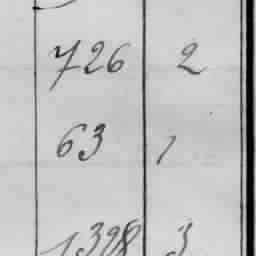 726 2
63 1
1398 3